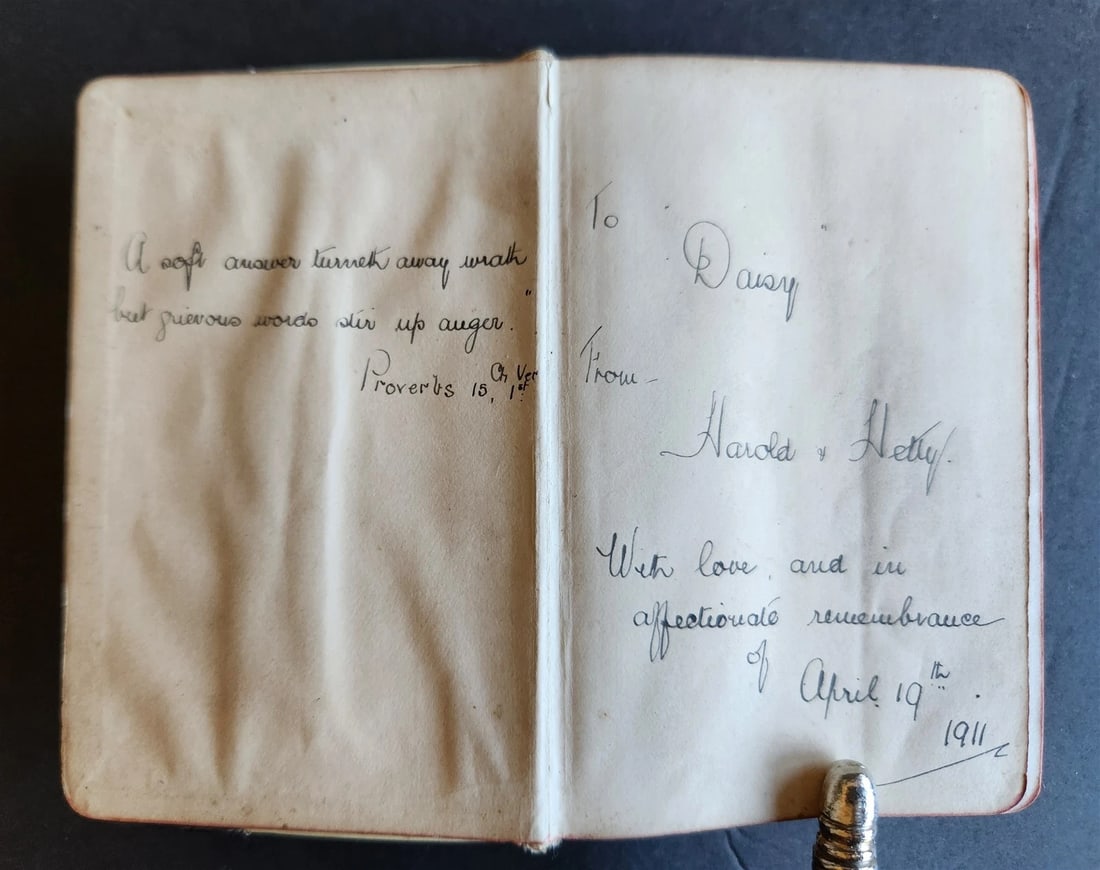 A soft answer turneth away wrath
but grievous words stir up anger."
Proverbs 15, Ch 1st Ver
To
Daisy
From -
Harold & Hetty.
With love, and in
affectionate remembrance
of
April 19th.
1911